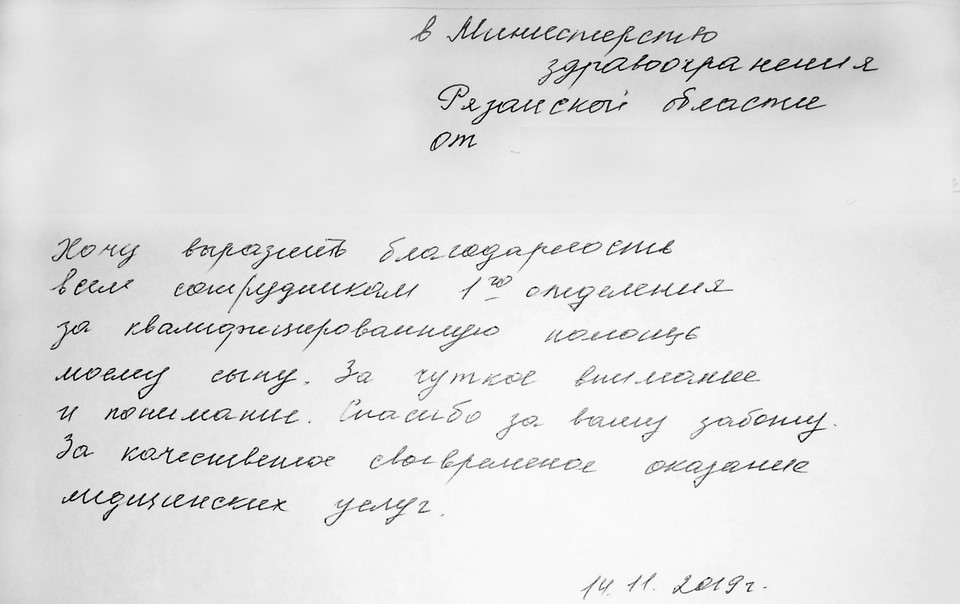 в Министерство
здравоохранения
Рязанской области
от
Хочу выразить благодарность
всем сотрудникам 1го отделения
за квалифицированную помощь
моему сыну. За чуткое внимание
и понимание. Спасибо за вашу заботу.
За качественное своевременое оказание
мидицинских услуг.
14.11.2019г.